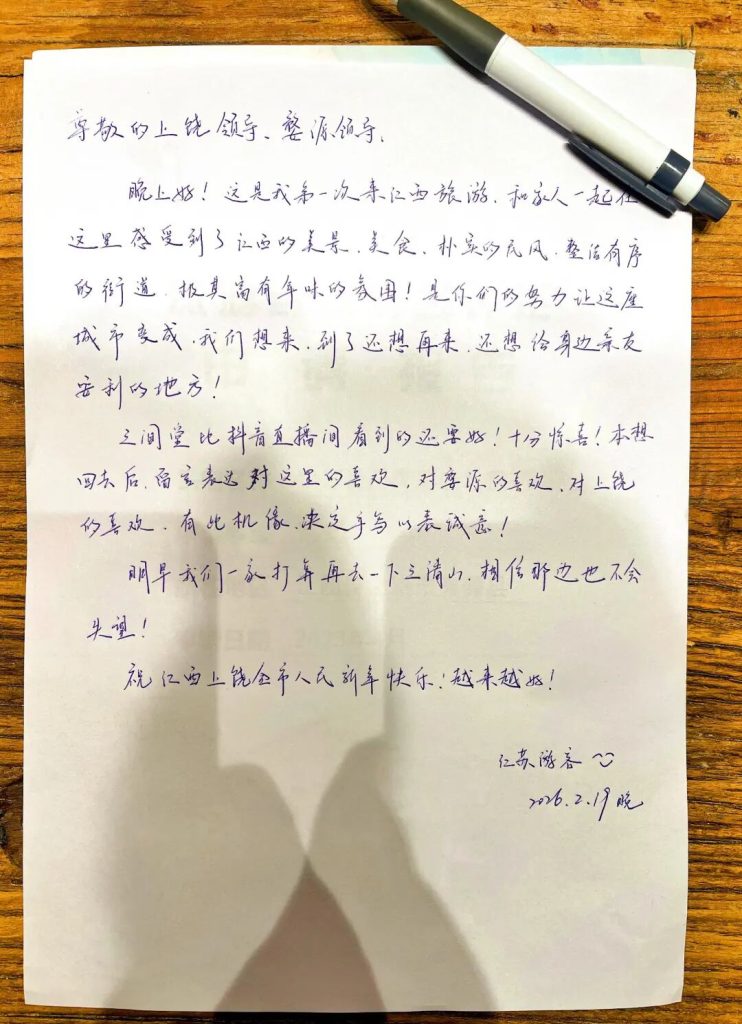 尊敬的上饶领导、婺源领导、
晚上好！这是我第一次来江西旅游，和家人一起在
这里感受到了江西的美景、美食、朴实的民风、整洁有序
的街道、极其富有年味的氛围！是你们的努力让这座
城市变成，我们想来，到了还想再来，还想给身边亲友
安利的地方！
三间堂比抖音直播间看到的还要好！十分惊喜！本想
回去后，留言表达对这里的喜欢，对婺源的喜欢，对上饶
的喜欢，有此机像，决定手写以表诚意！
明早我们一家打算再去一下三清山，相信那边也不会
失望！
祝江西上饶全市人民新年快乐！越来越好！
江苏游客
2026.2.19晚